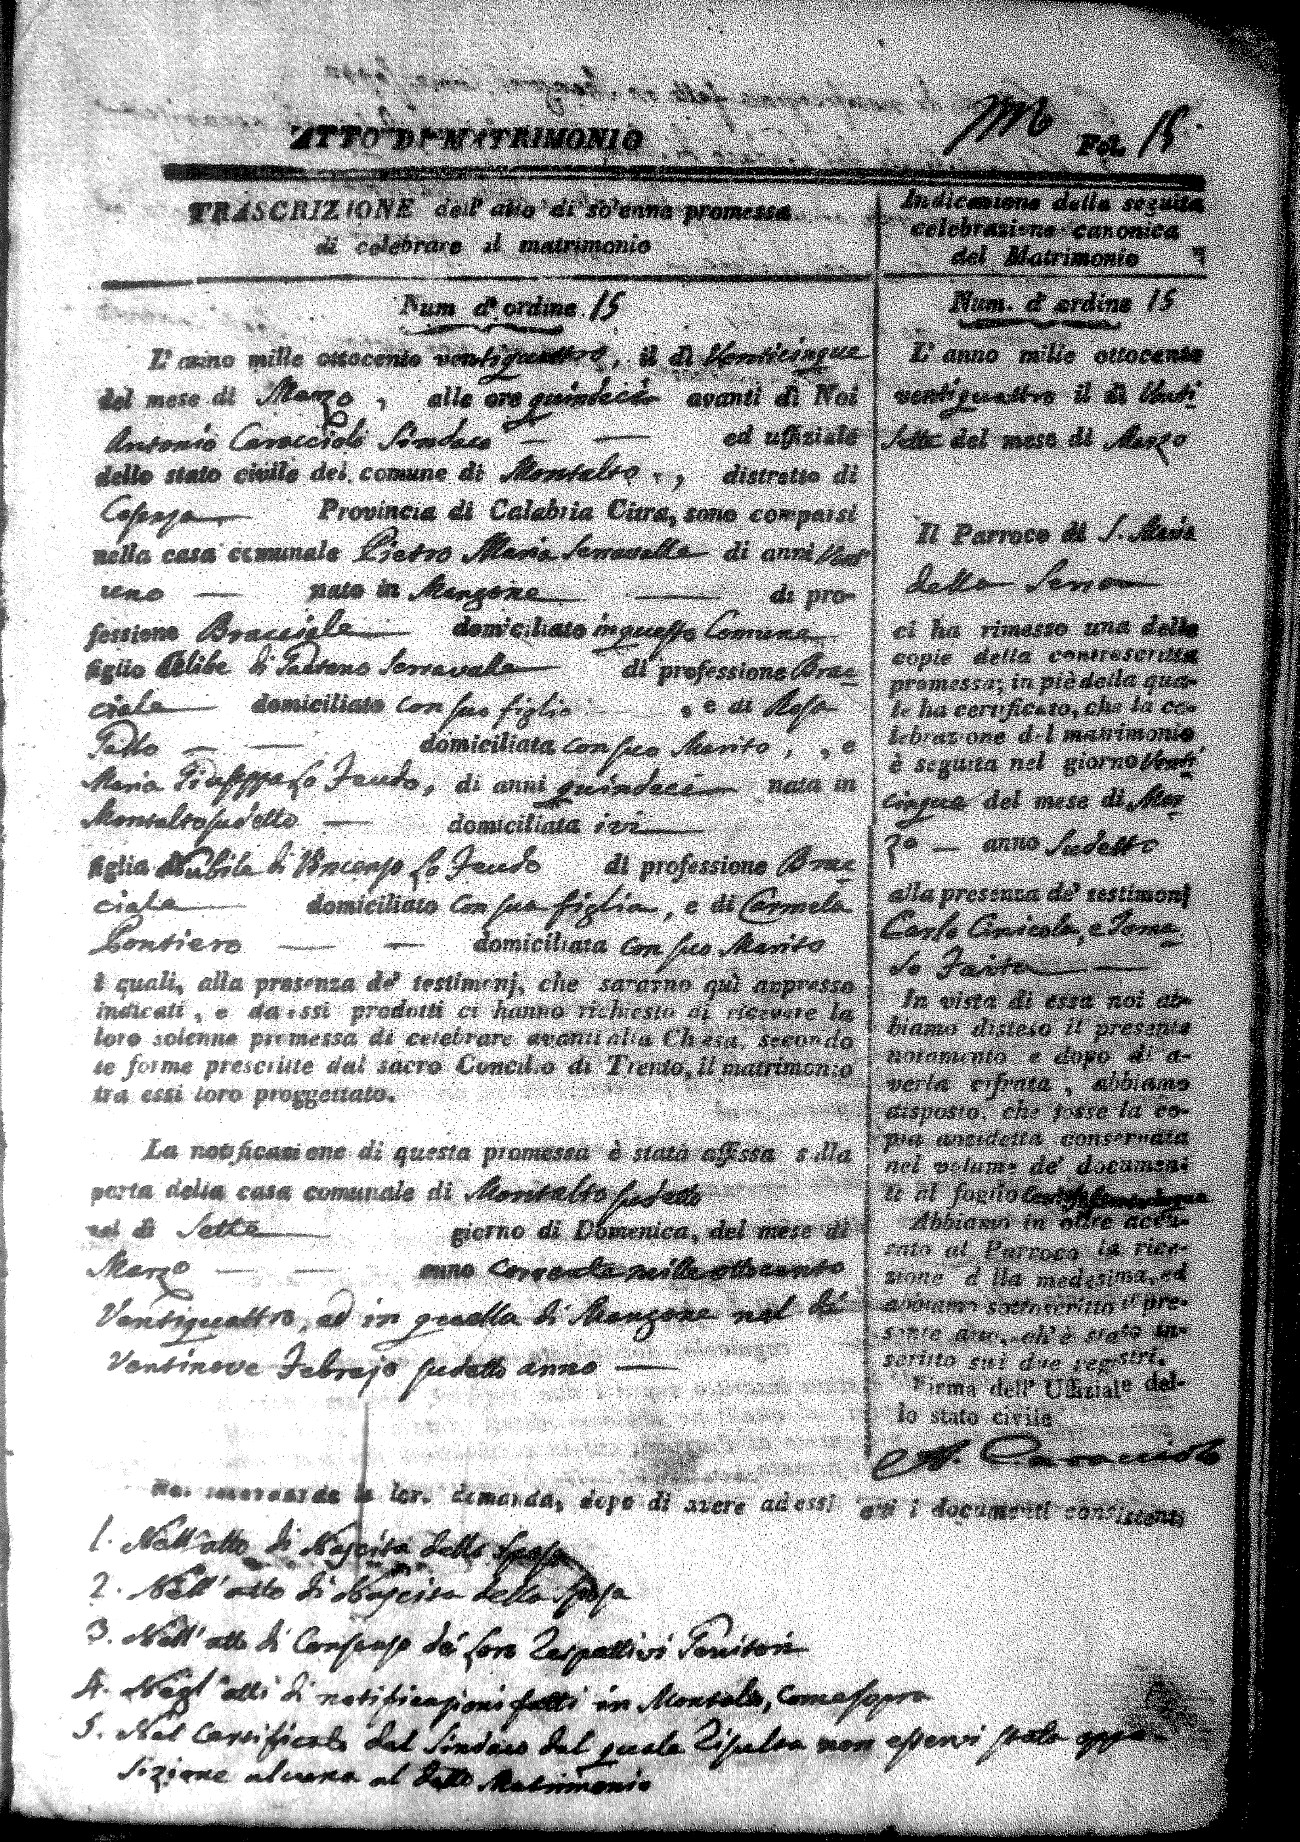 ATTO DI MATRIMONIO
Fol. 15
TRASCRIZIONE dell' atto di solenne promessa
di celebrare il matrimonio
Num d' ordine 15
L' anno mille ottocento ventiquattro, il dì Venticinque
del mese di Marzo, alle ore quindeci avanti di Noi
Antonio Caracciolo Sindaco ed uffiziale
dello stato civile del comune di Montalto, distretto di
Cosenza Provincia di Calabria Citra, sono comparsi
nella casa comunale Pietro Maria Serravalle di anni Vent
uno nato in Mangone di pro-
fessione Bracciale domiciliato in questo Comune
figlio Celibe di Gaetano Serravalle di professione Brac
ciale domiciliato con suo figlio, e di Rosa
domiciliata con suo Marito, e
Maria Giuseppa Lo Feudo, di anni quindeci nata in
Montalto sudetto domiciliata ivi
figlia Nubile di Vincenzo Lo Feudo di professione Brac
ciale domiciliato con sua figlia, e di Carmela
Pontiero domiciliata con suo Marito
i quali, alla presenza de' testimonj, che saranno quì appresso
indicati, e da essi prodotti ci hanno richiesto di ricevere la
loro solenne promessa di celebrare avanti alla Chiesa, secondo
le forme prescritte dal sacro Concilio di Trento, il matrimonio
tra essi loro proggettato.
La notificazione di questa promessa è stata affissa sulla
porta della casa comunale di Montalto sudetto
nel dì Sette giorno di Domenica, del mese di
Marzo anno corrente mille ottocento
Ventiquattro, ed in quella di Mangone nel dì
Ventinove Febrajo sudetto anno
Indicazione della seguita
celebrazione canonica
del Matrimonio
Num. d' ordine 15
L' anno mille ottocento
ventiquattro il dì Venti
sette del mese di Marzo
Il Parroco di S. Maria
della Serra
ci ha rimesso una delle
copie della controscritta
promessa; in piè della qua-
le ha certificato, che la ce-
lebrazione del matrimonio
è seguita nel giorno Venti
cinque del mese di Mar
zo anno sudetto
alla presenza de' testimonj
Carlo Cinicola, e Toma
so
In vista di essa noi ab-
biamo disteso il presente
notamento e dopo di a-
verla cifrata, abbiamo
disposto, che fosse la co-
pia anzidetta conservata
nel volume de' documen-
ti al foglio
Abbiamo in oltre accu-
sato al Parroco la rice-
zione della medesima, ed
abbiamo sottoscritto il pre-
sente atto, ch' è stato in-
scritto sui due registri.
Firma dell' Uffiziale del-
lo stato civile
A. Caracciolo
Noi secondando la lor. demanda, dopo di avere ad essi i documenti consistenti
1. Nell' atto di Nascita dello sposo
2. Nell' atto di Nascita della sposa
3. Nell' atto di Consenso dei loro respettivi Genitori
4. Negl' atti di notificazioni fatti in Montalto, come sopra
5. Nel Certificato del Sindaco dal quale risulta non esservi stata oppo-
sizione alcuna al detto Matrimonio